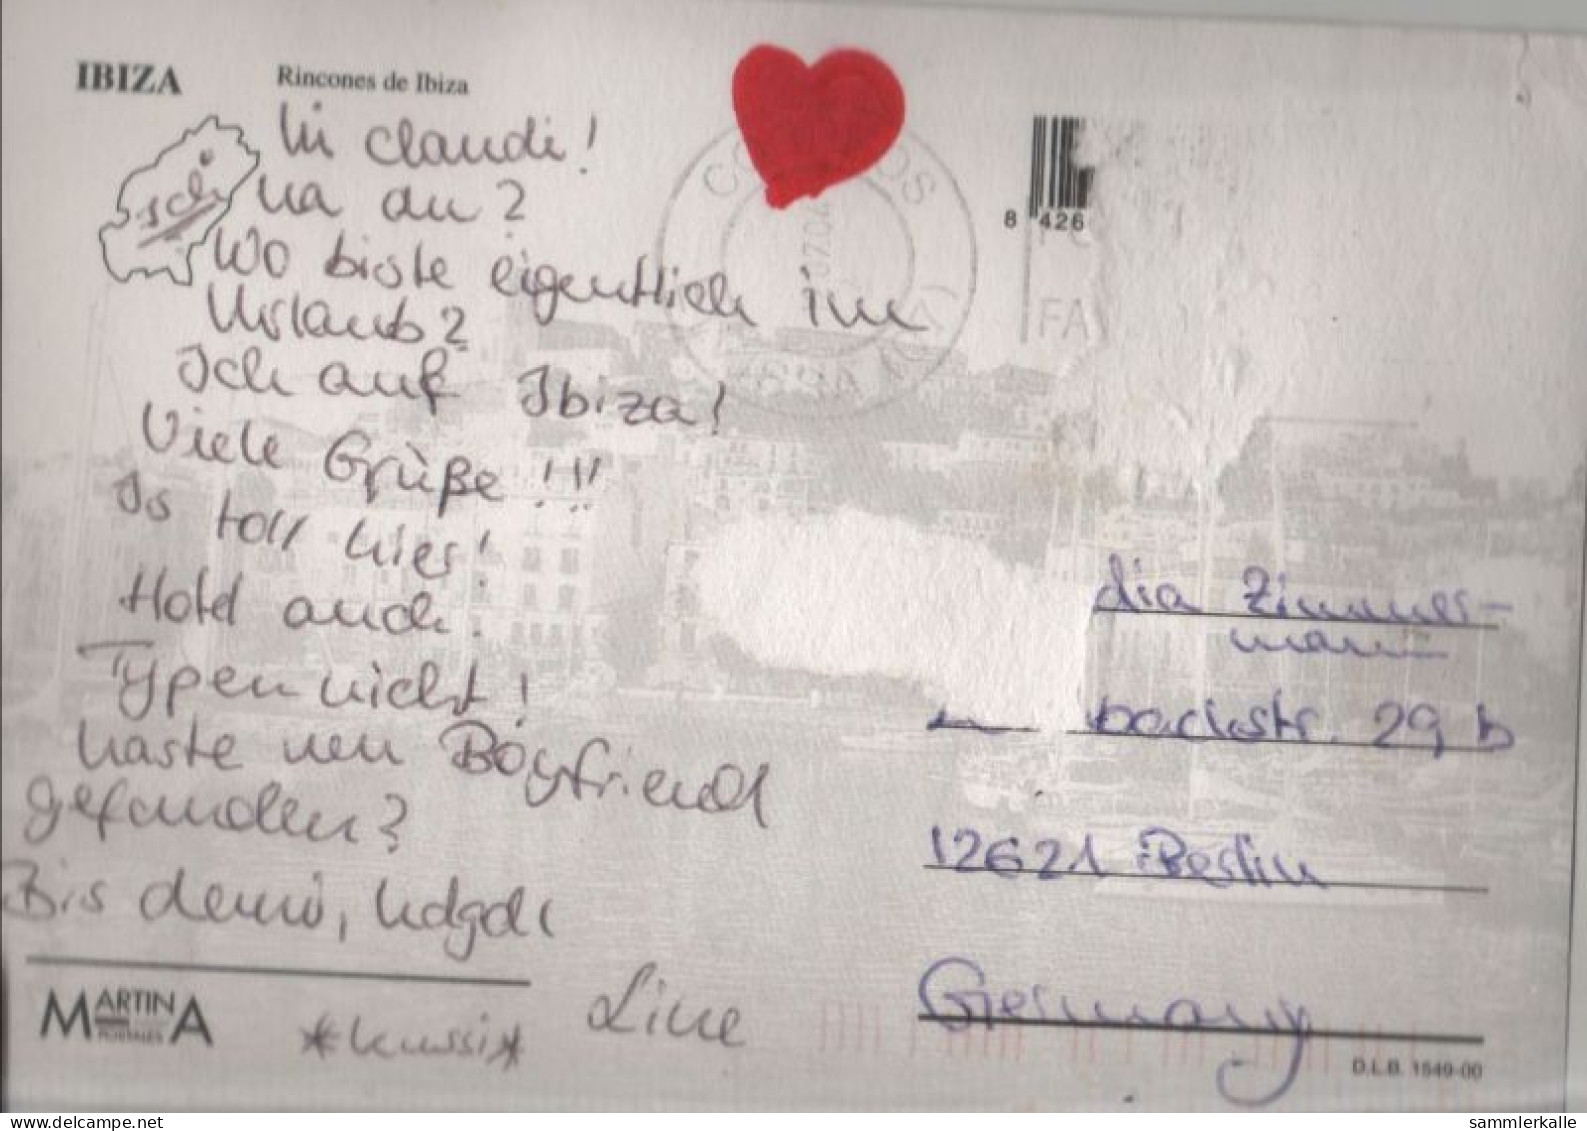 IBIZA
Rincones de Ibiza
hi claudi!
na du?
Wo biste eigentlich im
Urlaub?
Ich auf Ibiza!
Viele Grüße!!!
Is toll hier!
Hotel auch!
Typen nicht!
haste nen Boyfriend
gefunden?
Bis denni, hdgdl
Line
*kussi*
ich
8 426
FA
dia Zimmer-
mann
backstr. 29 b
12621 Berlin
Germany
MARTINA
POSTALES
D.L.B. 1549-00
delcampe.net
sammlerkalle